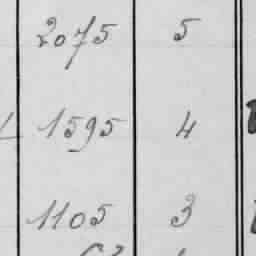 2075 5
1595 4
1105 3